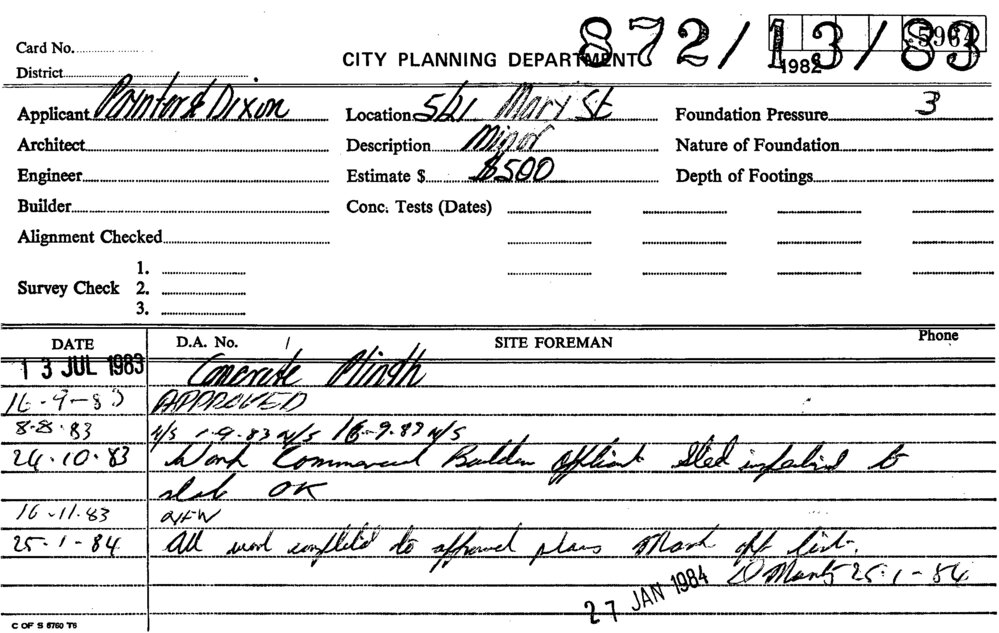 872/13/83
5964
1982
Card No.
District
CITY PLANNING DEPARTMENT
Applicant Paynter & Dixon
Location 5/21 Mary St
Foundation Pressure 3
Architect
Description Minor
Nature of Foundation
Engineer
Estimate $ $500
Depth of Footings
Builder
Conc. Tests (Dates)
Alignment Checked
Survey Check
1.
2.
3.
DATE
D.A. No.
SITE FOREMAN
Phone
13 JUL 1983 Concrete Plinth
APPROVED
8-8-83 N/S 1-9-83 N/S 16-9-83 N/S
24-10-83 Work Commenced Builder
slab OK
16-11-83
25-1-84 All work completed to approved plans Mark off list.
25-1-84
27 JAN 1984
C OF S 6760 T6